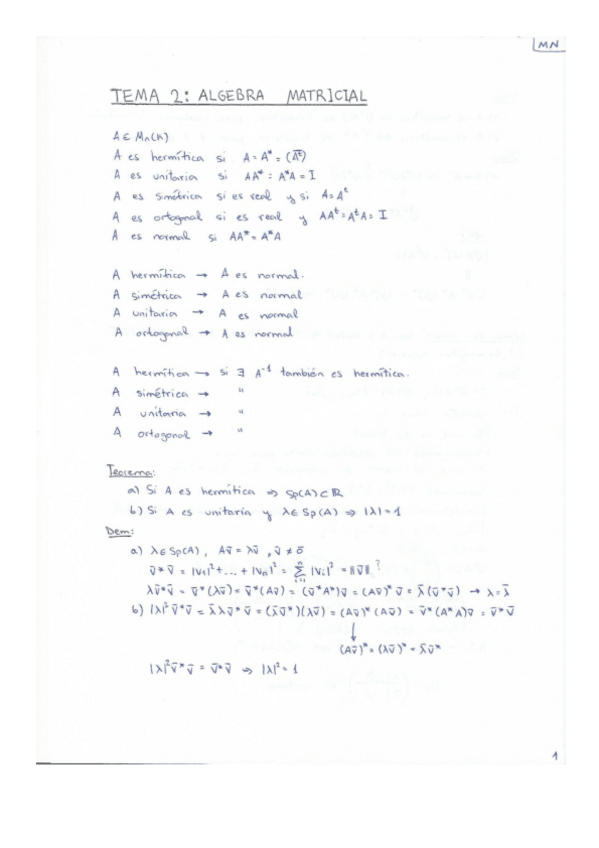 MN
TEMA 2: ALGEBRA MATRICIAL
A ∈ Mn(K)
A es hermítica si A = A* = (A̅ᵗ)
A es unitaria si AA* = A*A = I
A es simétrica si es real y si A = Aᵗ
A es ortogonal si es real y AAᵗ = AᵗA = I
A es normal si AA* = A*A
A hermítica → A es normal.
A simétrica → A es normal
A unitaria → A es normal
A ortogonal → A es normal
A hermítica → si ∃ A⁻¹ también es hermítica.
A simétrica → "
A unitaria → "
A ortogonal → "
Teorema:
a) Si A es hermítica ⇒ Sp(A) ⊂ ℝ
b) Si A es unitaria y λ ∈ Sp(A) ⇒ |λ| = 1
Dem:
a) λ ∈ Sp(A), Av̄ = λv̄, v̄ ≠ ō
v̄*v̄ = |v₁|² + ... + |vₙ|² = ∑ⁿᵢ₌₁ |vᵢ|² = ‖v̄‖₂²
λv̄*v̄ = v̄*(λv̄) = v̄*(Av̄) = (v̄*A*)v̄ = (Av̄)*v̄ = λ̄(v̄*v̄) → λ = λ̄
b) |λ|²v̄*v̄ = λ̄λv̄*v̄ = (λ̄v̄*)(λv̄) = (Av̄)*(Av̄) = v̄*(A*A)v̄ = v̄*v̄
↓
(Av̄)* = (λv̄)* = λ̄v̄*
|λ|²v̄*v̄ = v̄*v̄ ⇒ |λ|² = 1
1